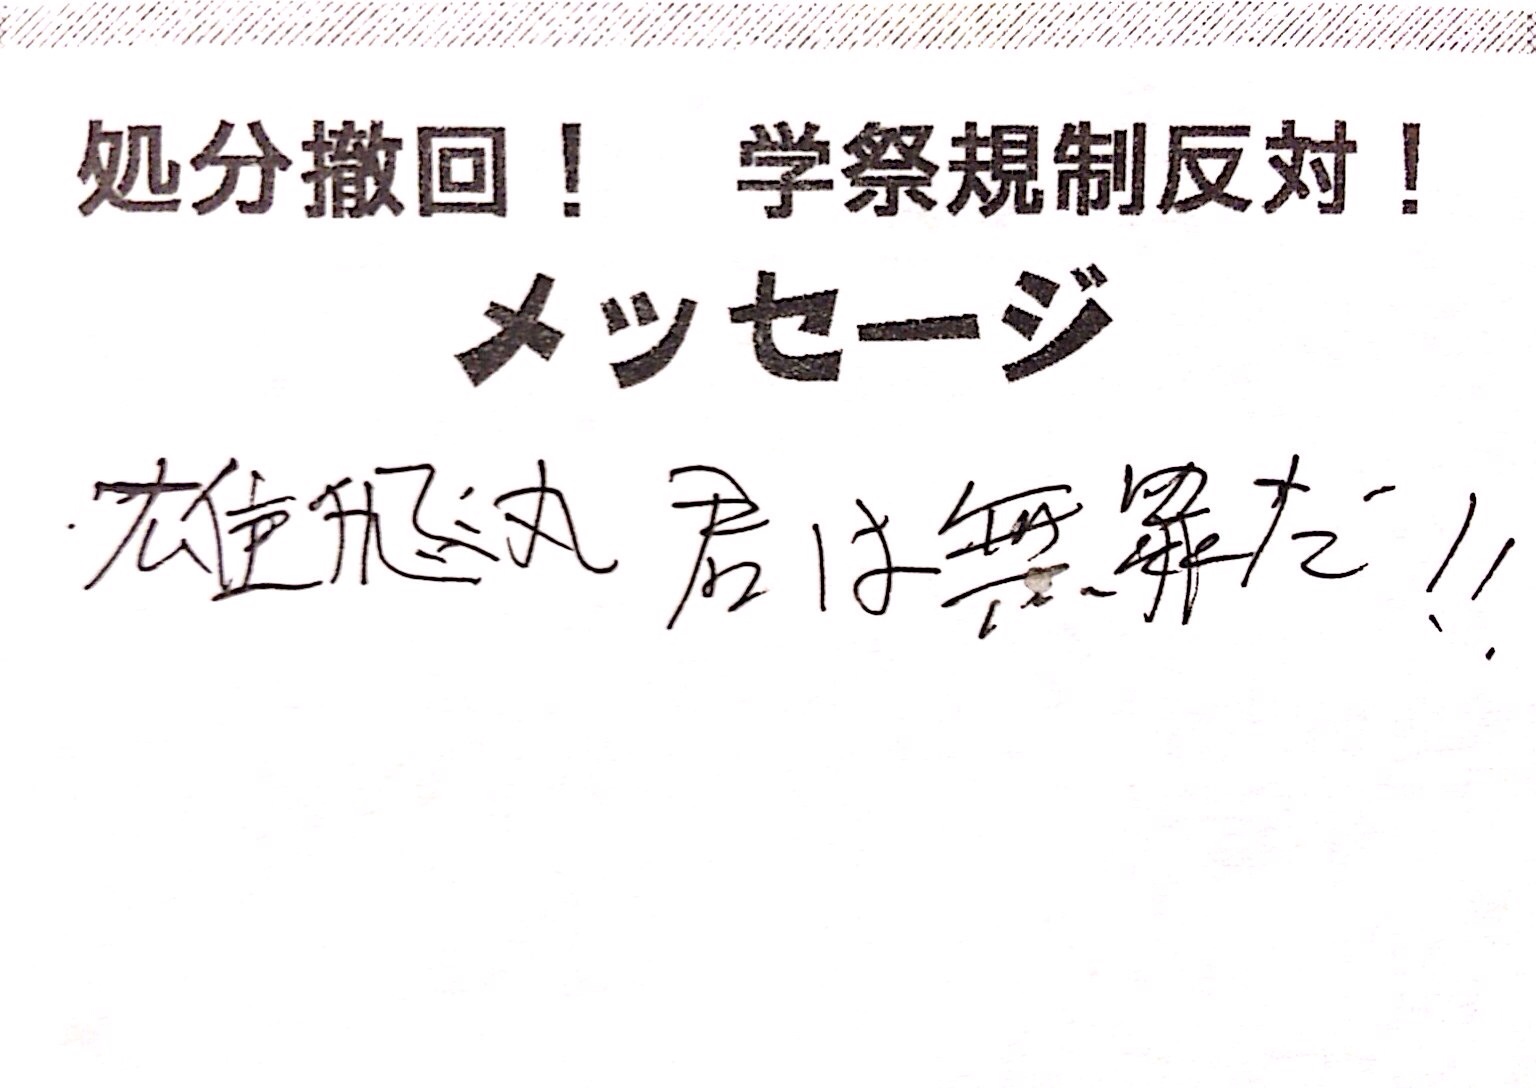 処分撤回！　学祭規制反対！
メッセージ
雄飛丸 君は無罪だ!!